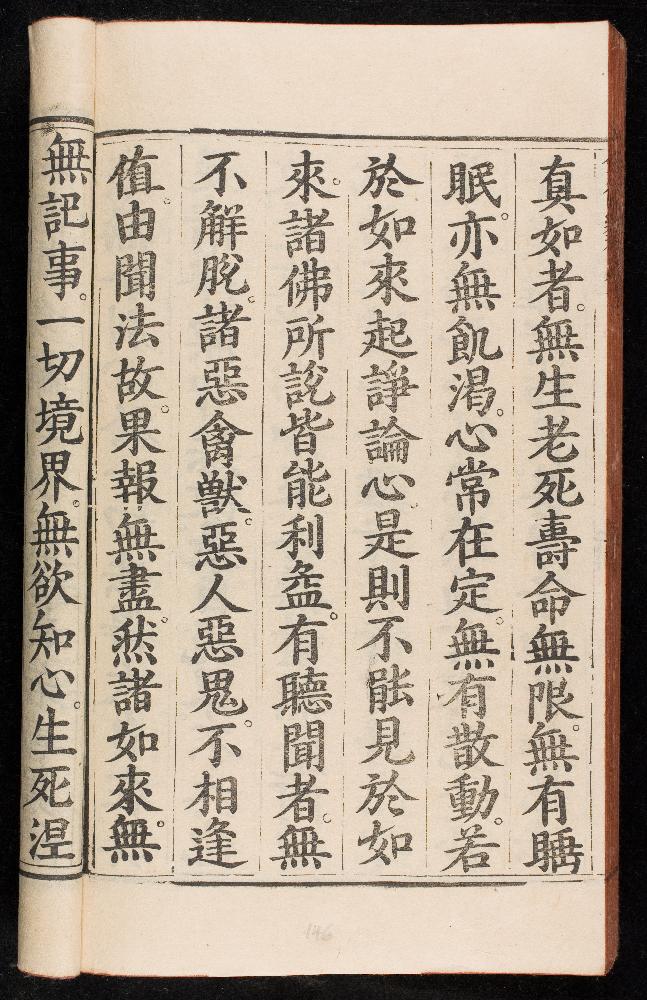 真如者。無生老死壽命無限。無有𥈭
眠。亦無飢渴。心常在定。無有散動。若
於如來起諍論心。是則不能見於如
來。諸佛所說皆能利益。有聽聞者。無
不解脫。諸惡禽獸。惡人惡鬼。不相逢
值由聞法故。果報無盡。然諸如來。無
無記事。一切境界。無欲知心。生死涅
146